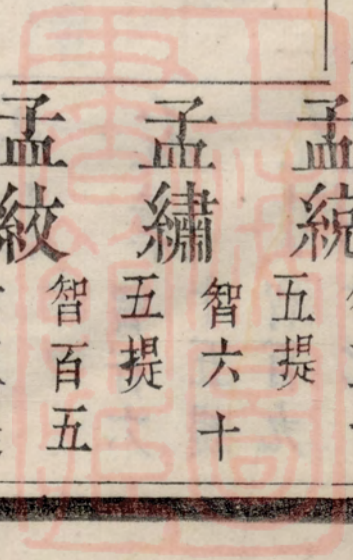 孟
五提
孟繡
智六十
五提
孟絞
智百五